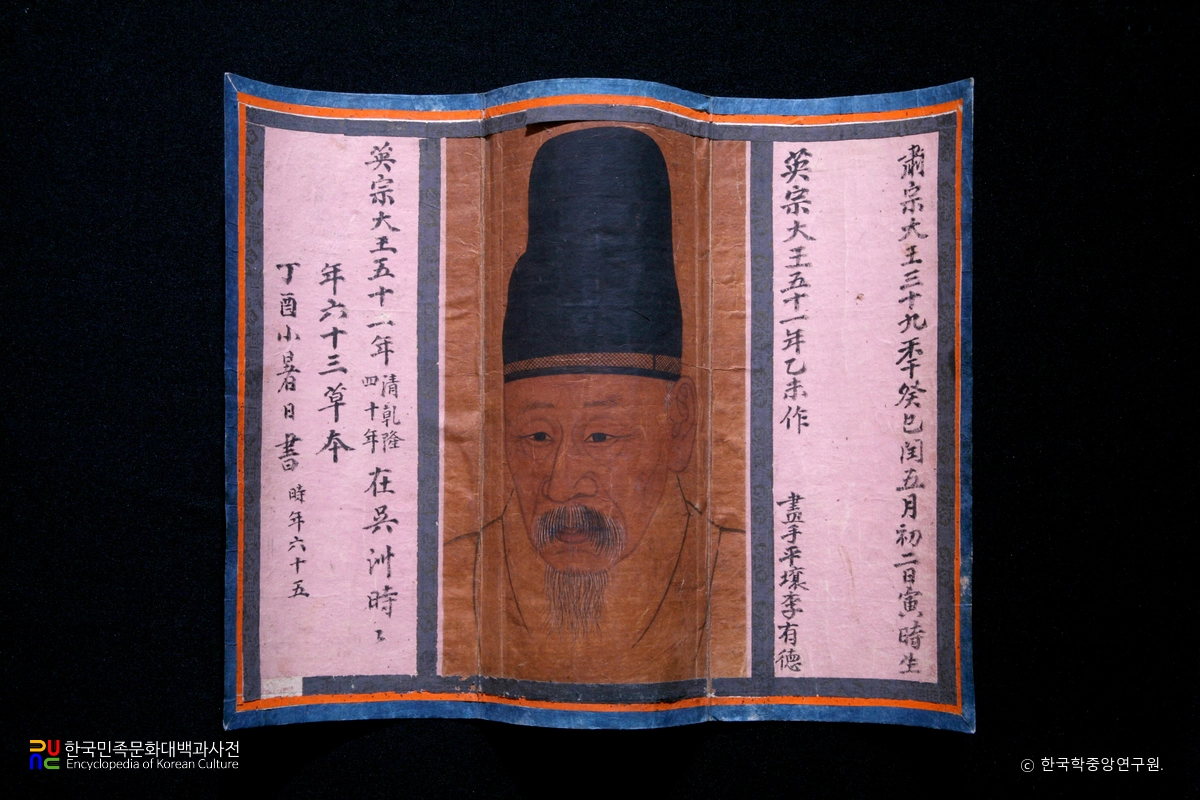 肅宗大王三十九季癸巳閏五月初二日寅時生
英宗大王五十一年乙未作 畫手平壤李有德
英宗大王五十一年 清乾隆四十年 在吳洲時〻
年六十三草本
丁酉小暑日書 時年六十五
한국민족문화대백과사전
Encyclopedia of Korean Culture
ⓒ 한국학중앙연구원.